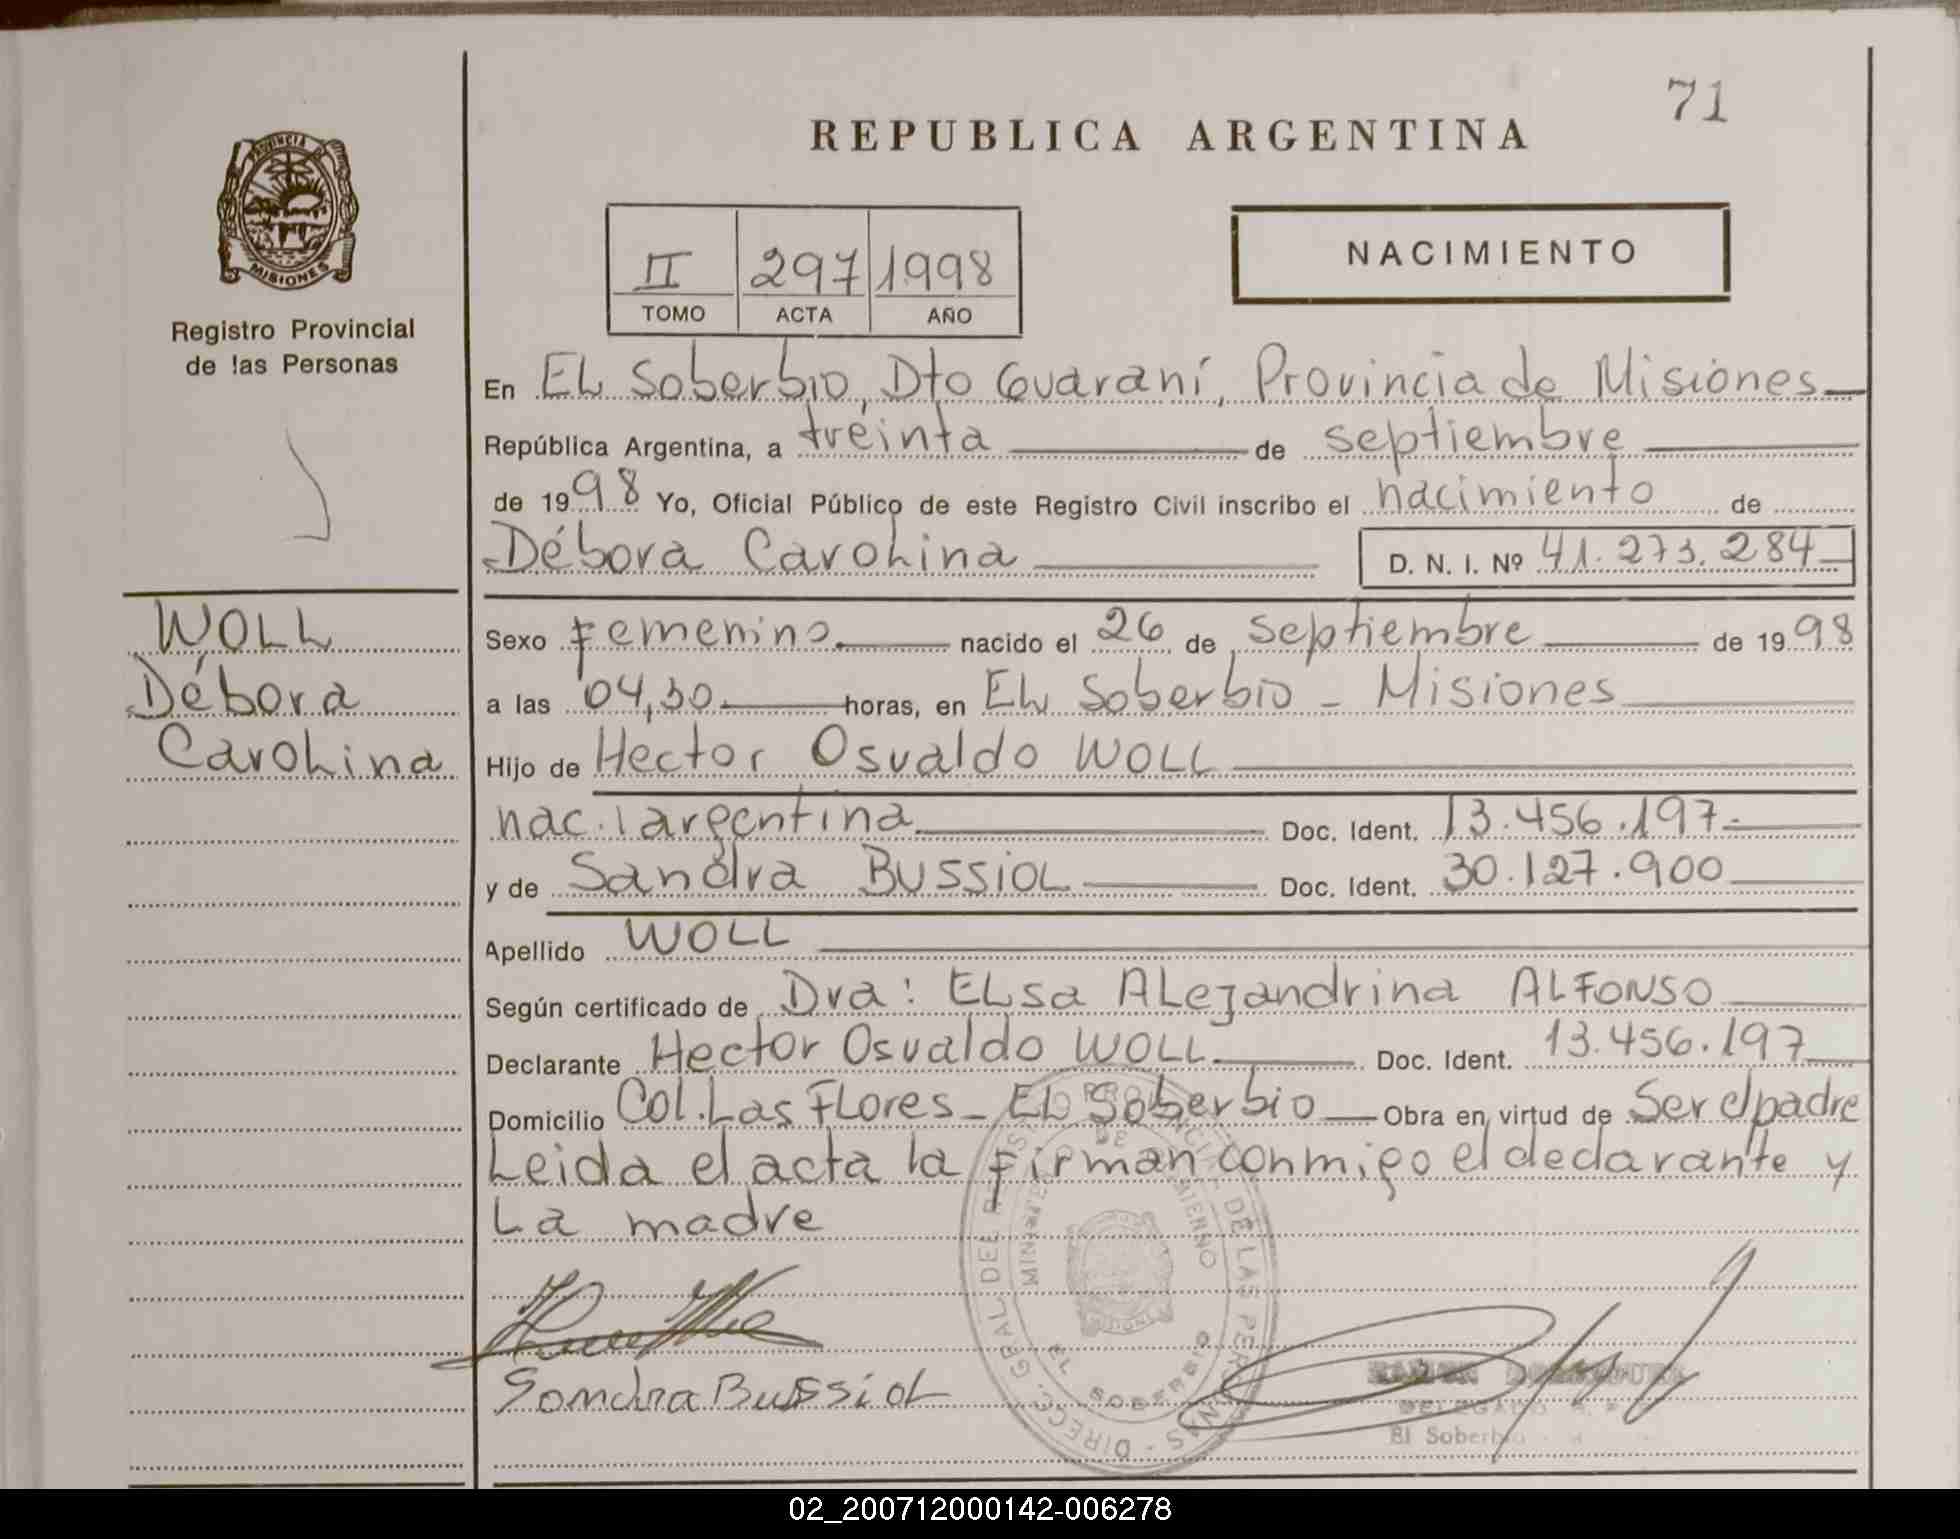 71
REPUBLICA ARGENTINA
PROVINCIA DE
MISIONES
Registro Provincial
de las Personas
II 297 1998
TOMO ACTA AÑO
NACIMIENTO
En EL Soberbio, Dto Guaraní, Provincia de Misiones
República Argentina, a treinta de septiembre
de 1998 Yo, Oficial Público de este Registro Civil inscribo el nacimiento de
Débora Carolina D. N. I. Nº 41.273.284
WOLL
Débora
Carolina
Sexo Femenino nacido el 26 de Septiembre de 1998
a las 04,30 horas, en EL Soberbio - Misiones
Hijo de Hector Osvaldo WOLL
nac. argentina Doc. Ident. 13.456.197
y de Sandra BUSSIOL Doc. Ident. 30.127.900
Apellido WOLL
Según certificado de Dra: ELsa ALejandrina ALFONSO
Declarante Hector Osvaldo WOLL Doc. Ident. 13.456.197
Domicilio Col. Las FLores - EL Soberbio Obra en virtud de Ser el padre
Leida el acta la firman conmigo el declarante y
La madre
Sandra Bussiol
DELEGADO
El Soberbio
02_200712000142-006278